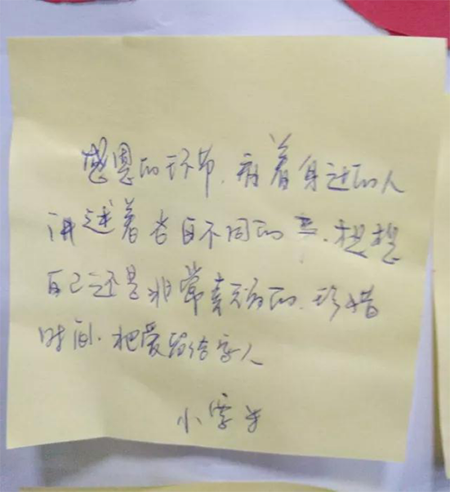 感恩的环节,看着身边的人
讲述着各自不同的事,想想
自己还是非常幸福的,珍惜
时间,把爱留给家人
小雪